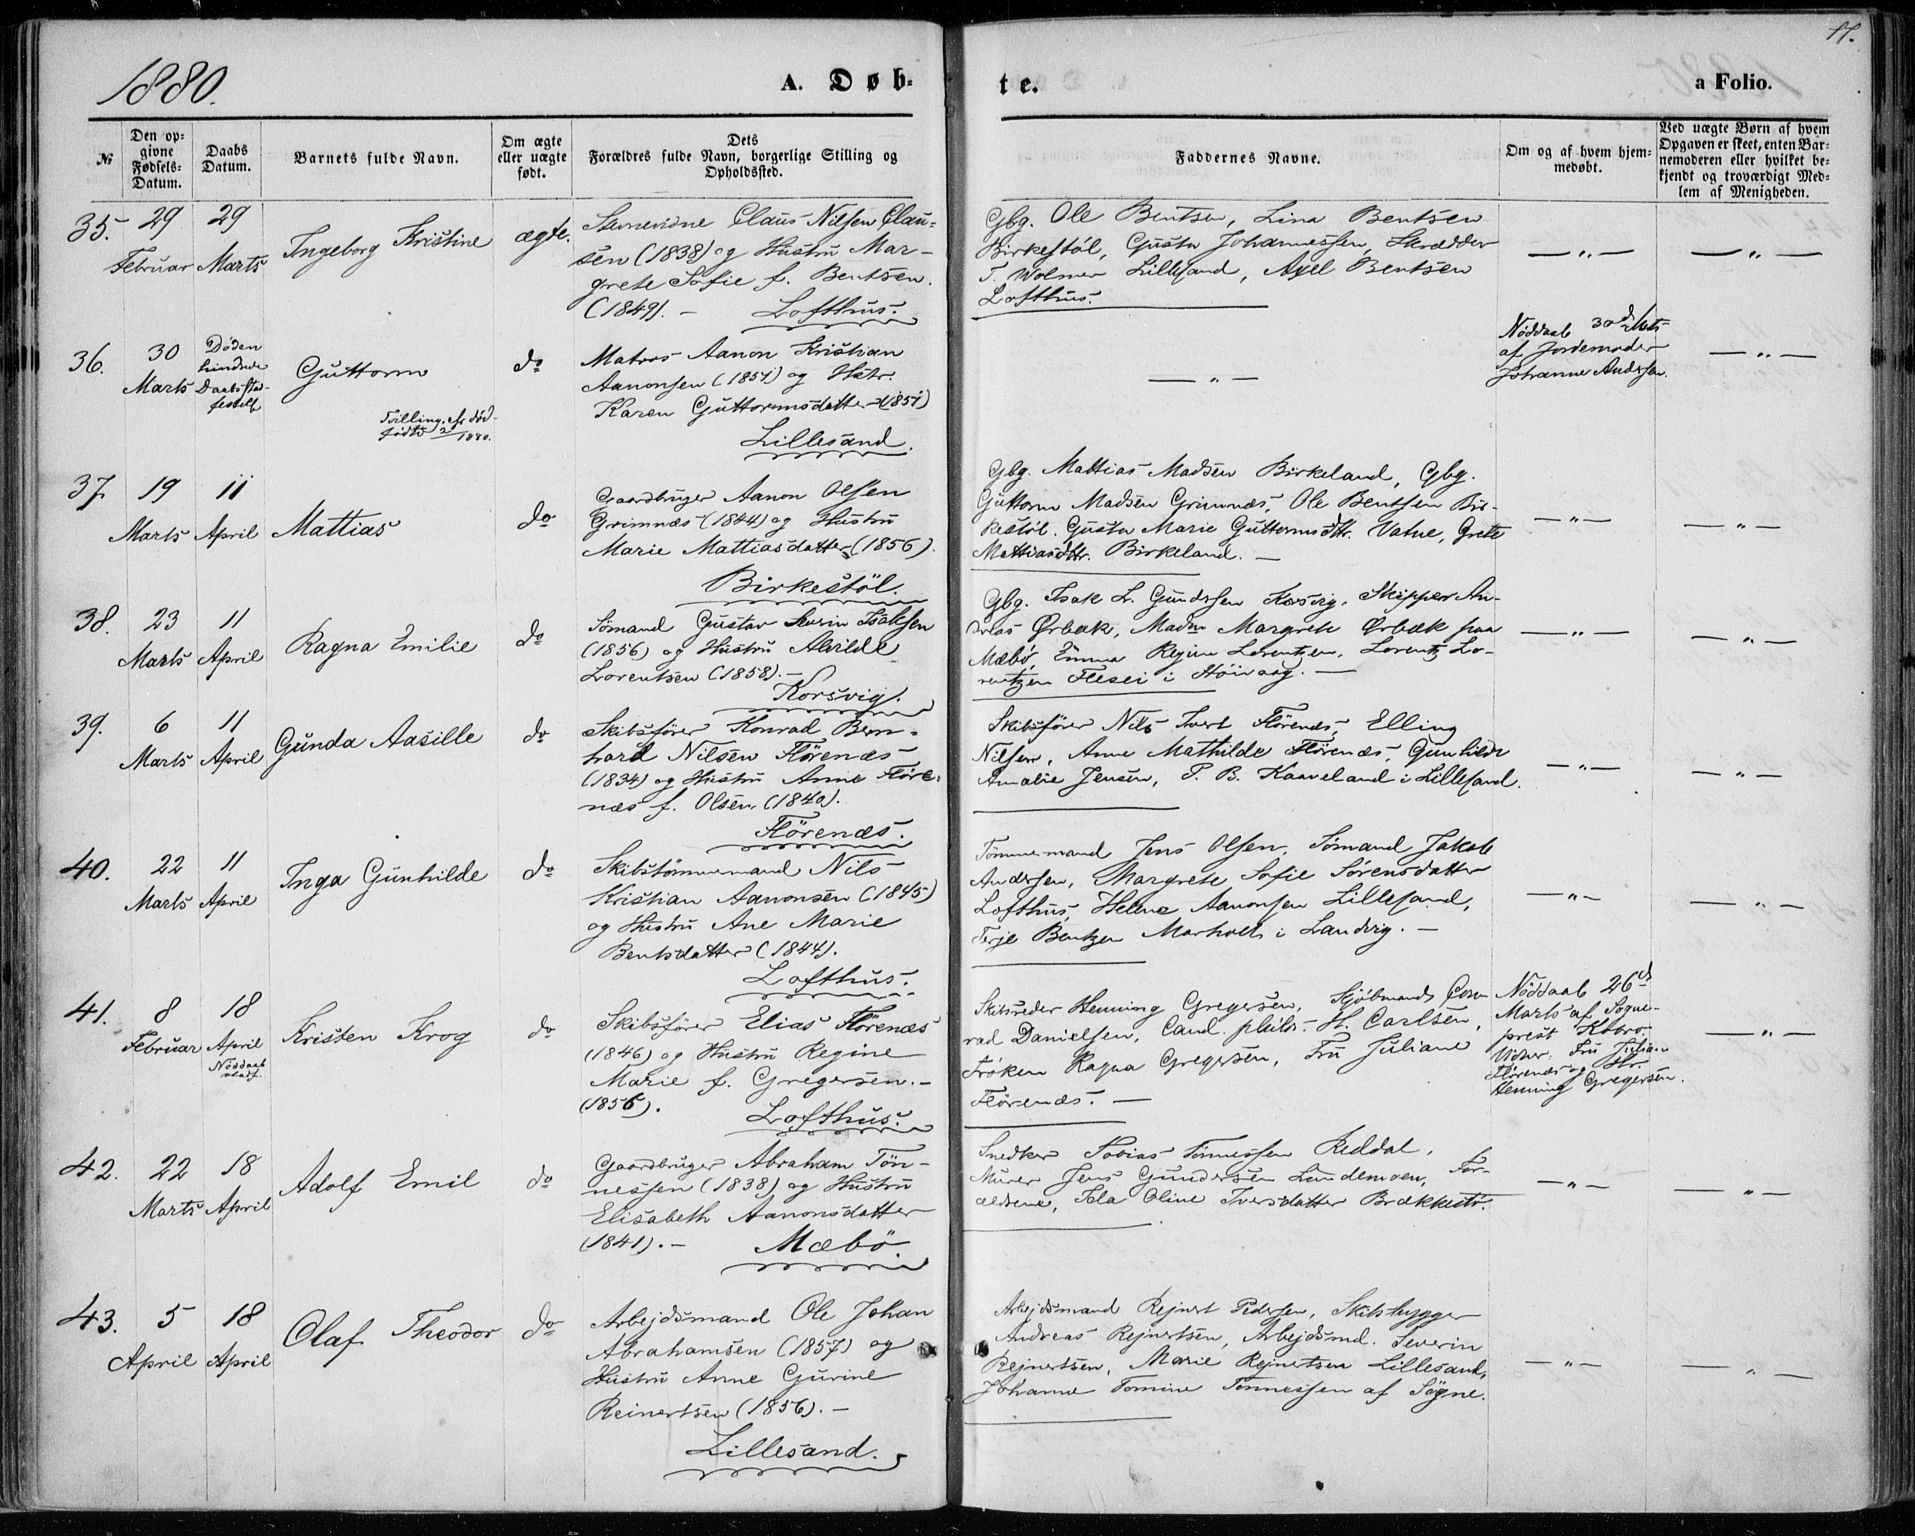 1880.
A. Døb-
te.
a Folio.
11.
№
Den op-
givne
Fødsels-
Datum.
Daabs
Datum.
Barnets fulde Navn.
Om ægte
eller uægte
født.
Dets
Forældres fulde Navn, borgerlige Stilling og
Opholdssted.
Faddernes Navne.
Om og af hvem hjem-
medøbt.
Ved uægte Børn af hvem
Opgaven er skeet, enten Bar-
nemoderen eller hvilket be-
kjendt og troværdigt Med-
lem af Menigheden.
35.
29
Februar
29
Marts
Ingeborg Kristine
ægte.
Claus Nilsen Clau-
sen (1838) og Hustru Mar-
grete Sofie f. Bentsen.
(1849). - Lofthus.
Gbg. Ole Bentsen, Lina Bentsen
Birkestöl, Gusta Johannessen, Skrædder
T. Wolmer Lillesand, Axel Bentsen
Lofthus.
— „ —
— „ —
36.
30
Marts
Døden
hindrede
Daabsstad-
festelse
Guttorm
Tvilling. Er død-
født
do
Matros Aanon Kristian
Aanonsen (1851) og Hstr.
Karen Guttormsdatter (1851)
Lillesand.
— „ —
Nöddaab 30d Mts
af Jordemoder
Johanne Andersen.
— „ —
37.
19
Marts
11
April
Mattias
do
Gaardbruger Aanon Olsen
Grimnæs (1844) og Hustru
Marie Mattiasdatter (1856).
Birkestöl.
Gbg. Mattias Madsen Birkeland, Gbg.
Guttorm Madsen Grimnæs, Ole Bentsen Bir-
kestöl. Gusta Marie Guttormsdtr. Vatne, Grete
Mattiasdtr. Birkeland. —
— „ —
— „ —
38.
23
Marts
11
April
Ragna Emilie
do
Sømand Gustav Severin Isaksen
(1856) og Hustru Alvilde
Lorentsen (1858). —
Korsvig.
Gbg. Isak L. Gundersen Korsvig, Skipper An-
dreas Ørbæk, Madm Margrete Ørbæk paa
Mæbø, Emma Regine Lorentzen, Lorentz Lo-
rentzen i Höivaag. —
— „ —
— „ —
39.
6
Marts
11
April
Gunda Aasille
do
Skibsfører Konrad Bern-
hard Nilsen Flörenæs
(1834) og Hustru Anne Flöre-
næs f. Olsen (1840).
Flörenæs.
Skibsfører Nils Ivert Flörenæs, Elling
Nilsen, Anne Mathilde Flörenæs, Gunhilde
Amalie Jensen, P. B. Kaaveland i Lillesand.
— „ —
— „ —
40.
22
Marts
11
April
Inga Gunhilde
do
Skibstömmermand Nils
Kristian Aanonsen (1845)
og Hustru Ane Marie
Bentsdatter (1844).
Lofthus.
Tömmermand Jens Olsen, Sömand Jakob
Andersen, Margrete Sofie Sörensdatter
Lofthus, Helene Aanonsen Lillesand,
Terje Bentzen Morholt i Landvig. —
— „ —
— „ —
41.
8
Februar
18
April
Nöddaab
stadf.
Kristen Krog
do
Skibsfører Elias Flörenæs
(1846) og Hustru Regine
Marie f. Gregersen. —
(1856). Lofthus.
Skibsreder Henning Gregersen, Kjøbmand Con-
rad Danielsen, Cand. philos. H. Carlsen,
Frøken Ragna Gregersen, Fru Juliane
Flörenæs. —
Nöddaab 26d
Marts af Sogne-
prest
Vidner: Fru Julian
Flörenæs og Hr.
Henning Gregersen.
— „ —
42.
22
Marts
18
April
Adolf Emil
do
Gaardbruger Abraham Tön-
nessen (1838) og Hustru
Elisabeth Aanonsdatter
(1841). — Mæbö.
Snedker Tobias Tönnessen Reddal,
Murer Jens Gundersen Lindemoen, For-
ældrene, Oline Iversdatter
— „ —
— „ —
43.
5
April
18
April
Olaf Theodor
do
Arbejdsmand Ole Johan
Abrahamsen (1857) og
Hustru Anne Gurine
Reinertsen (1856). —
Lillesand.
Arbejdsmand Rejnert Pedersen, Skibsbygger
Andreas Rejnertsen, Arbejdsmd. Severin
Rejnertsen, Marie Rejnertsen Lillesand,
Johanne Tomine Tönnessen af Sögne.
— „ —
— „ —